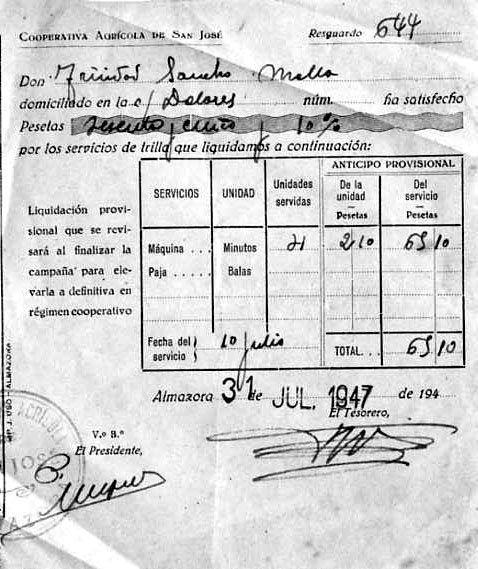 COOPERATIVA AGRÍCOLA DE SAN JOSÉ Resguardo 644
Don Trinidad Sancho Molla
domiciliado en la c/ Dolores núm. ha satisfecho
Pesetas sesenta y cinco y 10%
por los servicios de trilla que liquidamos a continuación:
Liquidación provisional que se revisará al finalizar la campaña para elevarla a definitiva en régimen cooperativo
SERVICIOS UNIDAD Unidades servidas ANTICIPO PROVISIONAL
De la unidad — Pesetas Del servicio — Pesetas
Máquina . . . Minutos 21 2 10 65 10
Paja . . . . . Balas
Fecha del servicio 10 julio TOTAL. . . 65 10
Almazora 31 de JUL. 1947 de 194
V.º B.º El Tesorero,
El Presidente,
IMP. J. USO - ALMAZORA